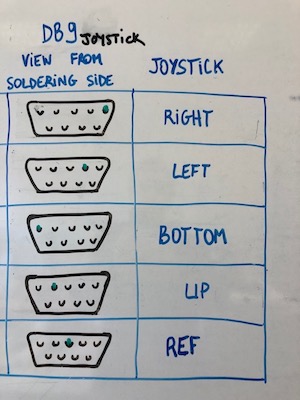 DB9 JOYSTICK
VIEW FROM
SOLDERING SIDE
JOYSTICK
RIGHT
LEFT
BOTTOM
UP
REF